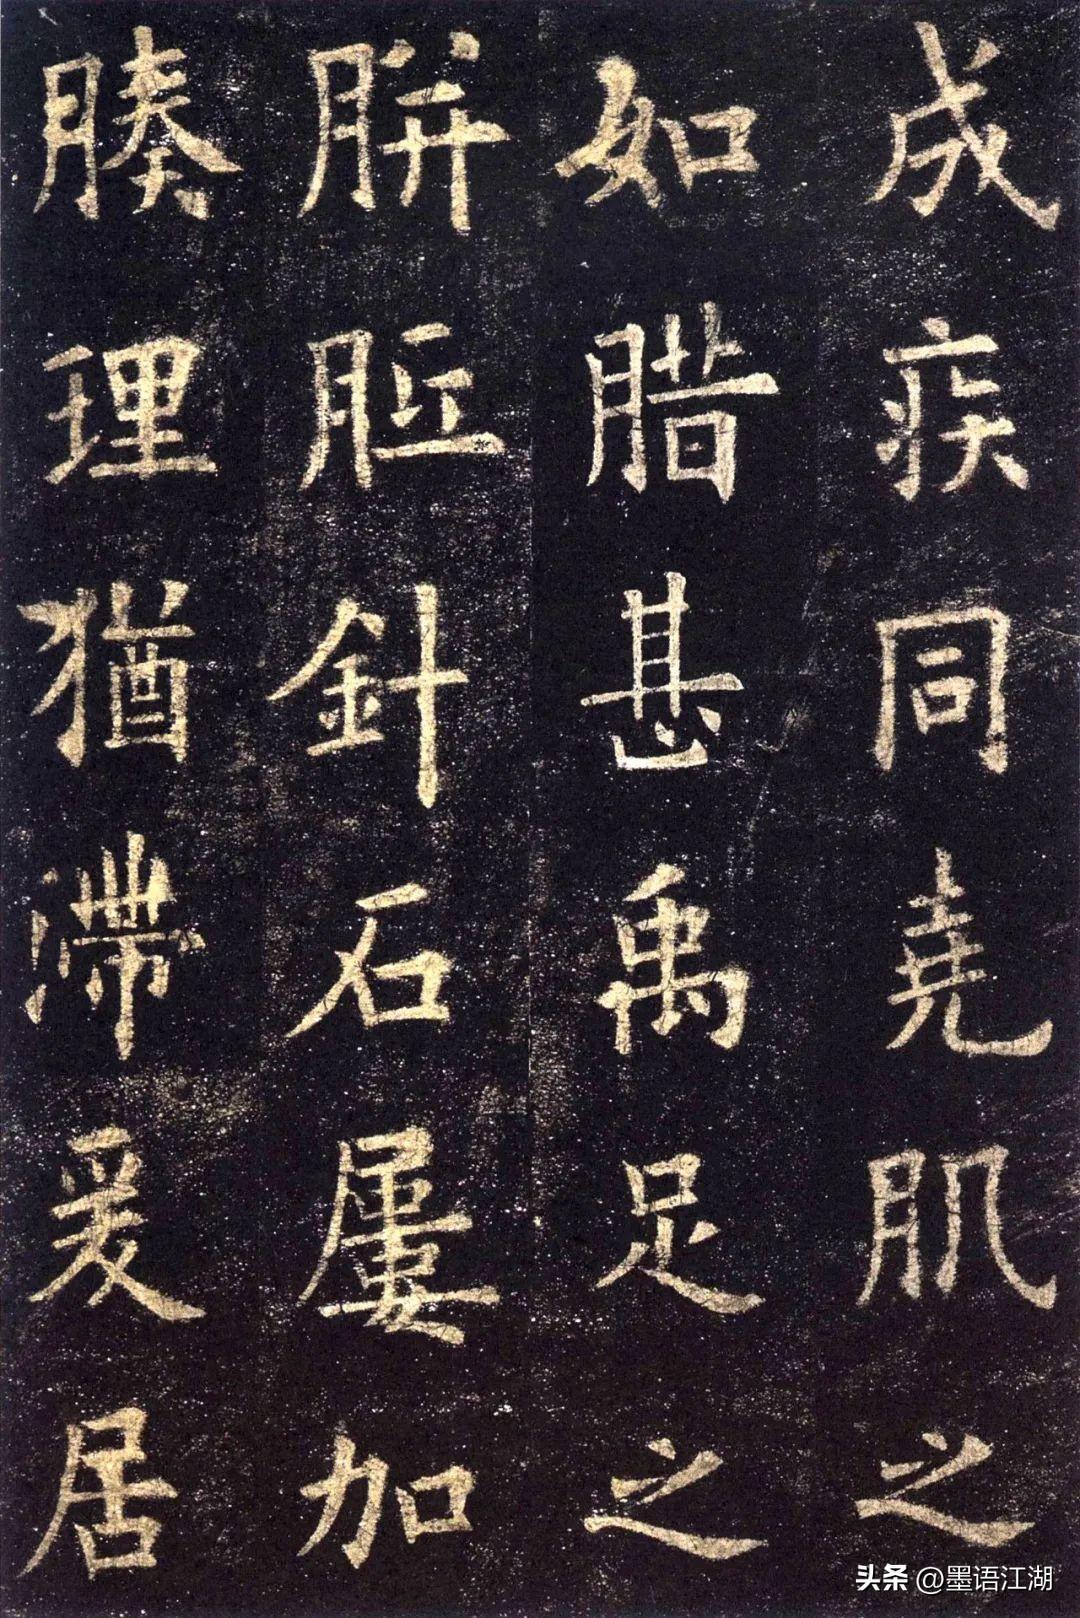 成疾同堯肌之
如腊甚禹足之
胼胝針石屢加
腠理猶滯爰居
头条 @墨语江湖